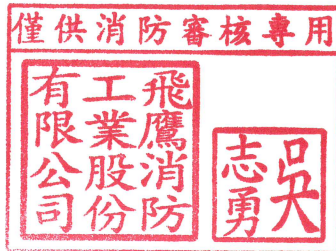 僅供消防審核專用
飛鷹消防
工業股份
有限公司
吳
志勇